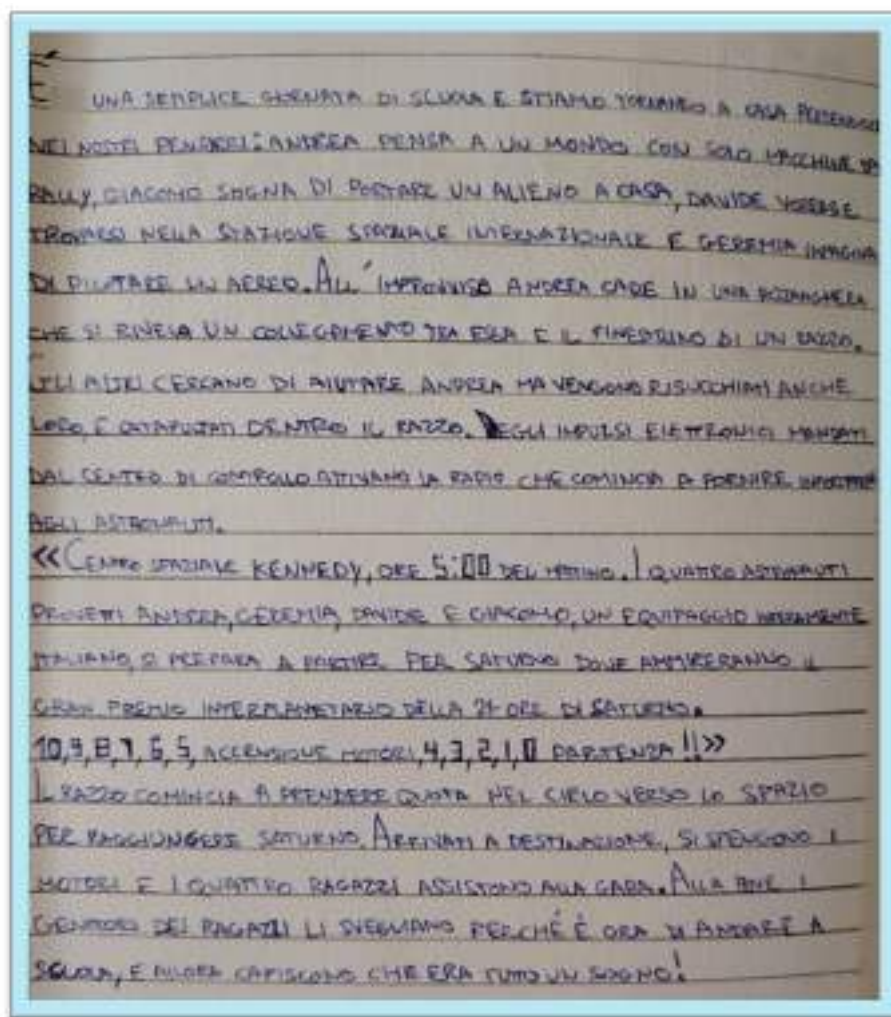 È UNA SEMPLICE GIORNATA DI SCUOLA E STIAMO TORNANDO A CASA PERDENDOCI
NEI NOSTRI PENSIERI: ANDREA PENSA A UN MONDO CON SOLO MACCHINE DA
RALLY, GIACOMO SOGNA DI PORTARE UN ALIENO A CASA, DAVIDE VORREBBE
TROVARSI NELLA STAZIONE SPAZIALE INTERNAZIONALE E GEREMIA IMMAGINA
DI PILOTARE UN AEREO. ALL'IMPROVVISO ANDREA CADE IN UNA POZZANGHERA
CHE SI RIVELA UN COLLEGAMENTO TRA ESSA E IL FINESTRINO DI UN RAZZO.
GLI ALTRI CERCANO DI AIUTARE ANDREA MA VENGONO RISUCCHIATI ANCHE
LORO, E CATAPULTATI DENTRO IL RAZZO. DEGLI IMPULSI ELETTRONICI MANDATI
DAL CENTRO DI CONTROLLO ATTIVANO LA RADIO CHE COMINCIA A FORNIRE
AGLI ASTRONAUTI.
«CENTRO SPAZIALE KENNEDY, ORE 5:00 DEL MATTINO. I QUATTRO ASTRONAUTI
PROVETTI ANDREA, GEREMIA, DAVIDE E GIACOMO, UN EQUIPAGGIO INTERAMENTE
ITALIANO, SI PREPARA A PARTIRE PER SATURNO DOVE AMMIRERANNO IL
GRAN PREMIO INTERPLANETARIO DELLA 24 ORE DI SATURNO.
10,9,8,7,6,5, ACCENSIONE MOTORI, 4,3,2,1,0 PARTENZA!!»
IL RAZZO COMINCIA A PRENDERE QUOTA NEL CIELO VERSO LO SPAZIO
PER RAGGIUNGERE SATURNO. ARRIVATI A DESTINAZIONE, SI SPENGONO I
MOTORI E I QUATTRO RAGAZZI ASSISTONO ALLA GARA. ALLA FINE I
GENITORI DEI RAGAZZI LI SVEGLIANO PERCHÉ È ORA DI ANDARE A
SCUOLA, E ALLORA CAPISCONO CHE ERA TUTTO UN SOGNO!